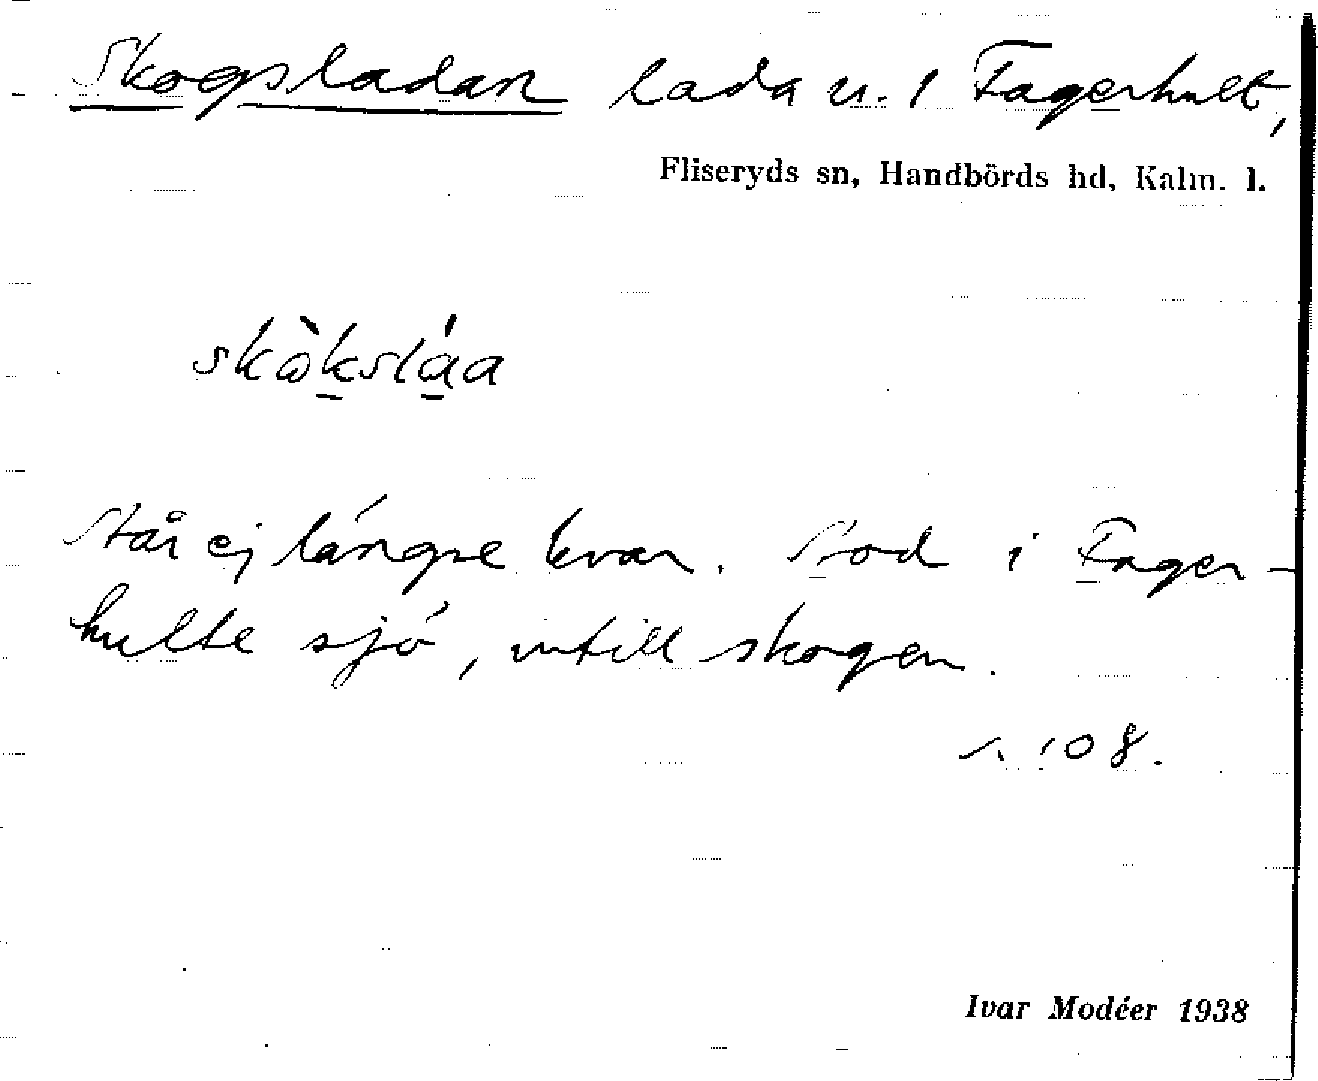 Skogsladan lada u. 1 Fagerhult,
Fliseryds sn, Handbörds hd, Kalm. l.
skòksláa
Står ej längre kvar. Stod i Fager-
hulte sjö, intill skogen.
s. 108.
Ivar Modéer 1938